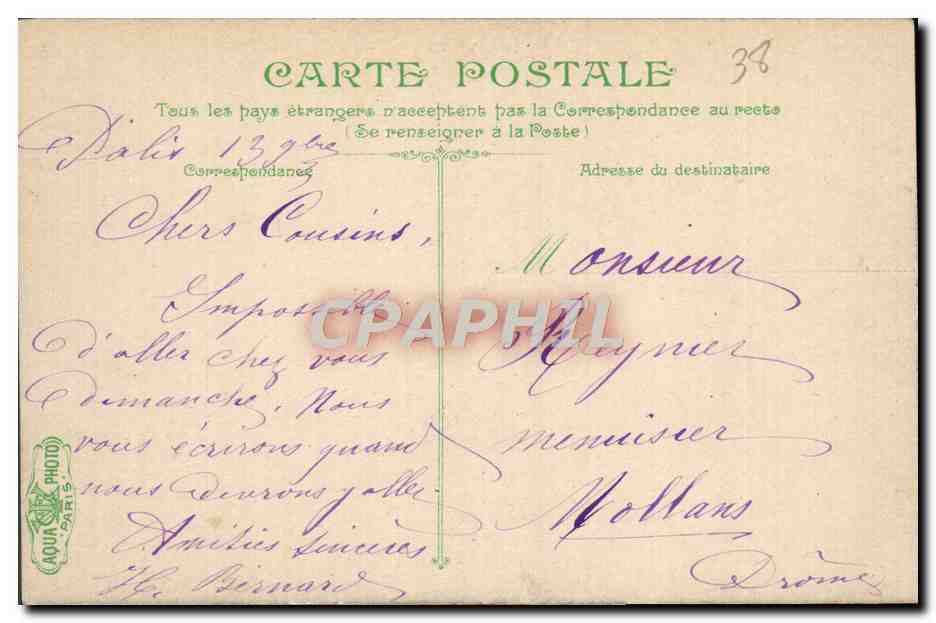 CARTE POSTALE
38
Tous les pays étrangers n'acceptent pas la Correspondance au recto
(Se renseigner à la Poste)
13 9bre
Correspondance
Chers Cousins,
Impossible
d'aller chez vous
dimanche. Nous
vous écrirons quand
nous devrons y aller.
Amitiés sincères
H. Bernard
Adresse du destinataire
Monsieur
Reynier
menuisier
Mollans
Drôme
AQUA PHOTO
PARIS
CPAPHIL